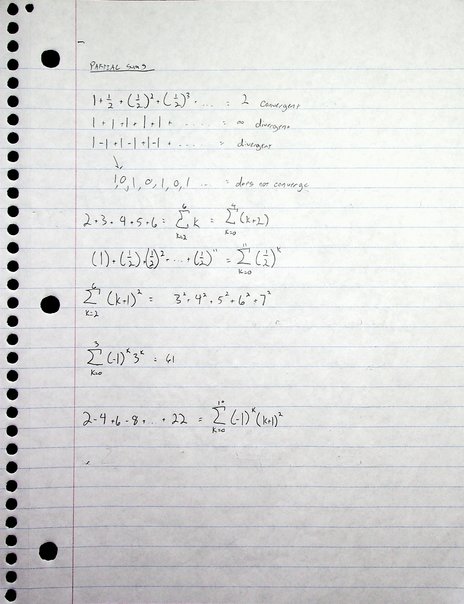 PARTIAL SUMS
1 + 1/2 + (1/2)² + (1/2)³ + .... = 2 convergent
1 + 1 + 1 + 1 + 1 + ...... = ∞ divergent
1 - 1 + 1 - 1 + 1 - 1 + ...... = divergent
1, 0, 1, 0, 1, 0, 1 .... = does not converge
2 + 3 + 4 + 5 + 6 = ∑_{k=2}^{6} k = ∑_{k=0}^{4} (k+2)
(1) + (1/2) + (1/2)² + ... + (1/2)¹¹ = ∑_{k=0}^{11} (1/2)^k
∑_{k=2}^{6} (k+1)² = 3² + 4² + 5² + 6² + 7²
∑_{k=0}^{3} (-1)^k 3^k = 61
2 - 4 + 6 - 8 + ... + 22 = ∑_{k=0}^{10} (-1)^k (k+1)²